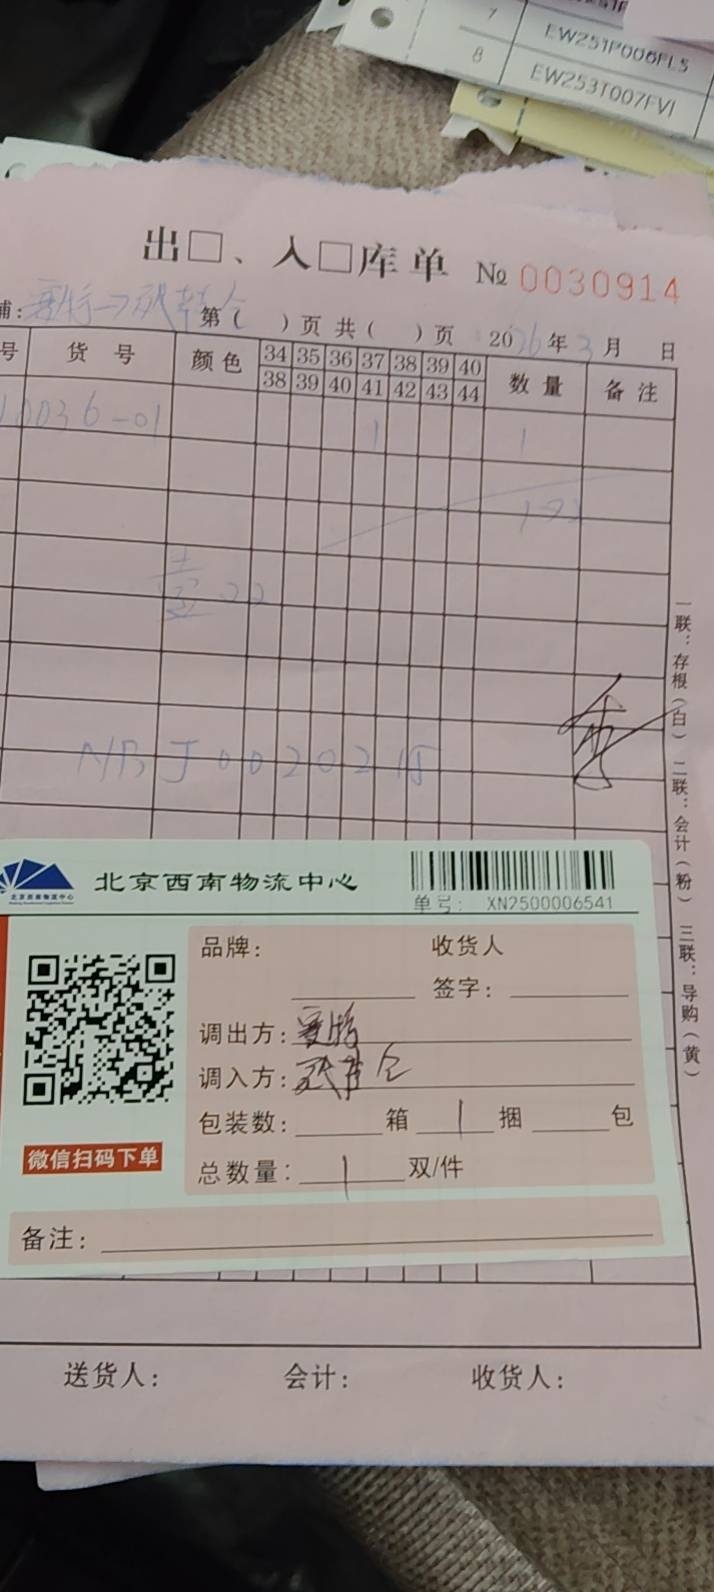 7 EW251P006FLS
8 EW253T007FVI
出□、入□库单 № 0030914
铺: 赛特→残鞋仓 第( )页 共( )页 2026年3月 日
号 货号 颜色 34 35 36 37 38 39 40 数量 备注
38 39 40 41 42 43 44
10036-01 1 1
NBJ0020215
一联：存根（白） 二联：会计（粉） 三联：导购（黄）
北京西南物流中心
北京西南物流中心
单号: XN2500006541
品牌: 收货人
签字:
调出方: 赛特
调入方: 残鞋仓
包装数: 箱 1 捆 包
总数量: 1 双/件
微信扫码下单
备注:
送货人: 会计: 收货人: